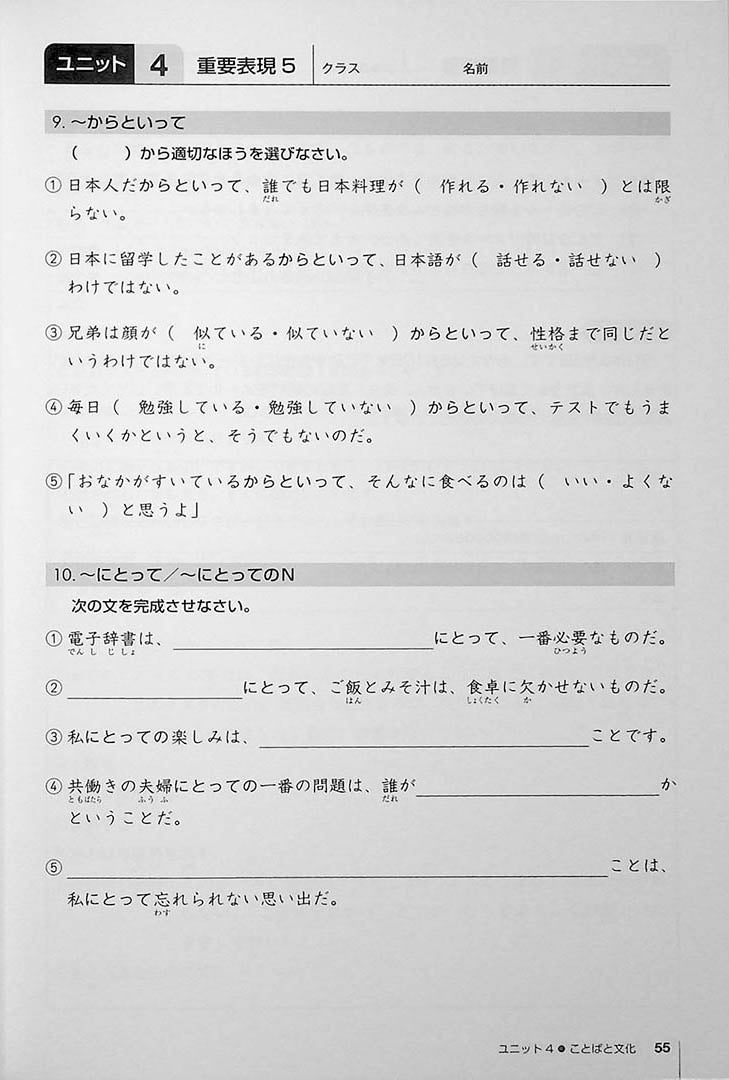 ユニット 4 重要表現 5 クラス 名前
9. 〜からといって
(　　)から適切なほうを選びなさい。
① 日本人だからといって、誰でも日本料理が(　作れる・作れない　)とは限
だれ かぎ
らない。
② 日本に留学したことがあるからといって、日本語が(　話せる・話せない　)
わけではない。
③ 兄弟は顔が(　似ている・似ていない　)からといって、性格まで同じだと
に せいかく
いうわけではない。
④ 毎日(　勉強している・勉強していない　)からといって、テストでもうま
くいくかというと、そうでもないのだ。
⑤「おなかがすいているからといって、そんなに食べるのは(　いい・よくな
い　)と思うよ」
10. 〜にとって／〜にとってのN
次の文を完成させなさい。
① 電子辞書は、＿＿＿＿＿＿＿＿にとって、一番必要なものだ。
でん し じ しょ ひつよう
② ＿＿＿＿＿＿にとって、ご飯とみそ汁は、食卓に欠かせないものだ。
はん しょくたく か
③ 私にとっての楽しみは、＿＿＿＿＿＿＿＿＿＿ことです。
④ 共働きの夫婦にとっての一番の問題は、誰が＿＿＿＿＿＿＿＿か
ともばたら ふう ふ だれ
ということだ。
⑤ ＿＿＿＿＿＿＿＿＿＿＿＿＿＿＿＿ことは、
私にとって忘れられない思い出だ。
わす
ユニット 4 ● ことばと文化 55